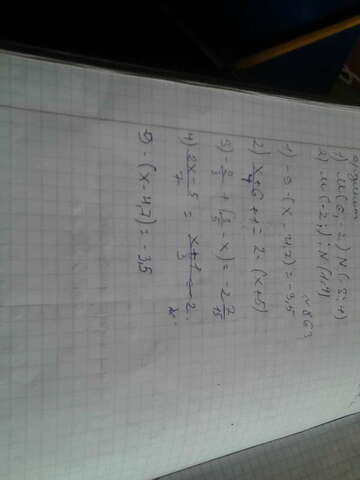 1) M(0; -2) N(3; 4)
2) M(-2; 1); N(1; 4)
№ 863
1) -0 - (x - 4,7) = -3,5
2) x+6/4 + 1 = 2 · (x+5)
3) -2/3 + (1/5 - x) = -2 2/15
4) 2x-5/7 = x+1/3 - 2
5) - (x - 4,7) = -3,5